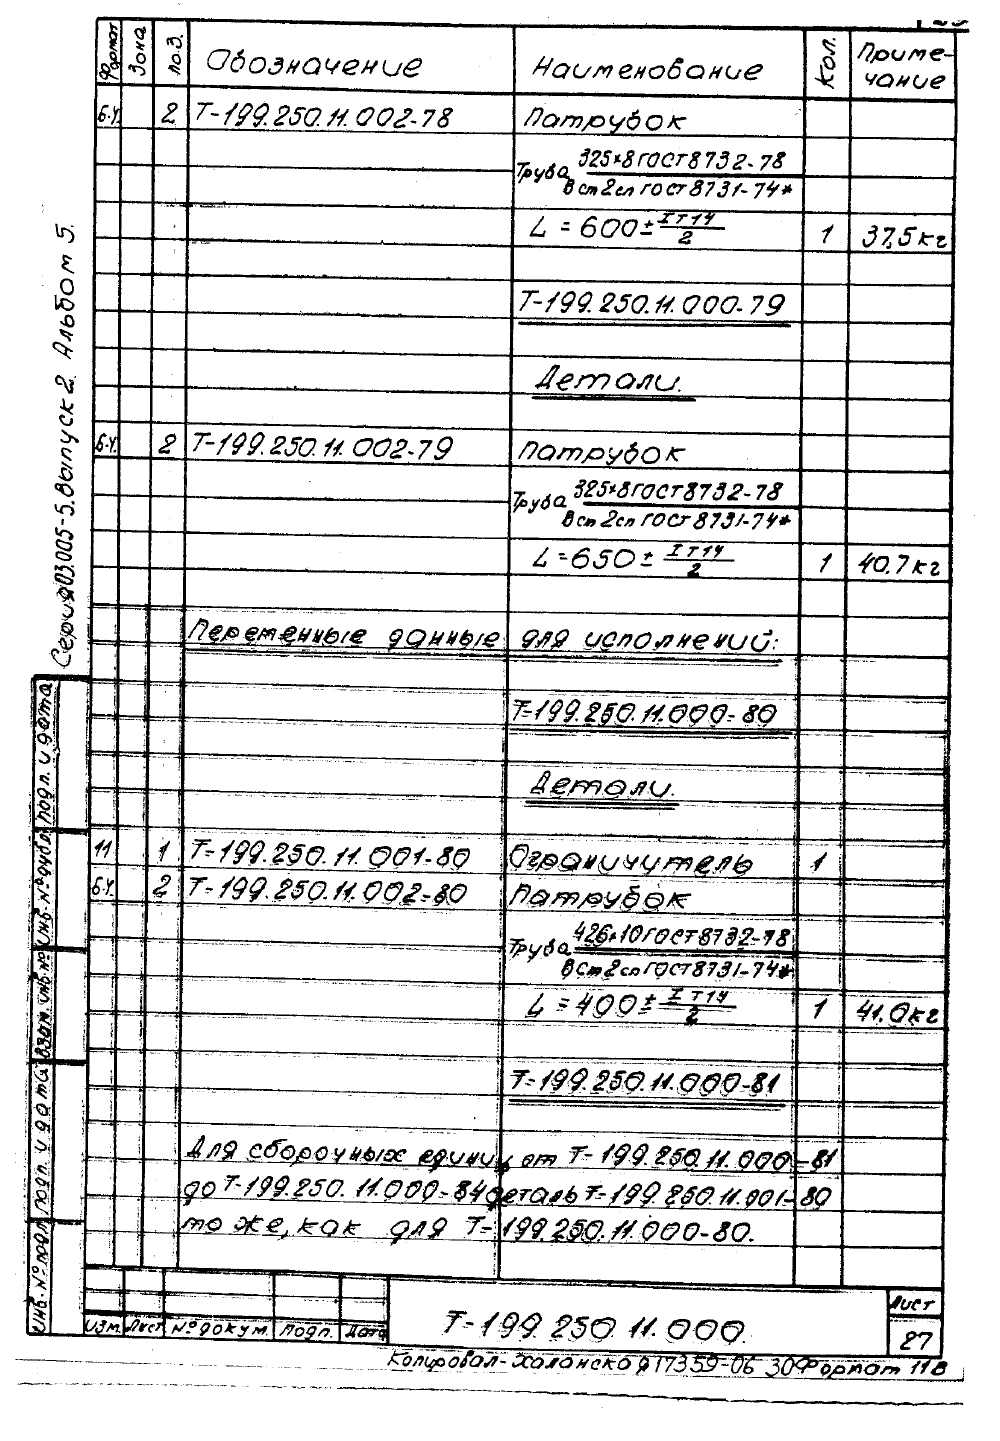 Серия 3.005-5. Выпуск 2. Альбом 5.
Формат
Зона
Поз.
Обозначение
Наименование
Кол.
Приме-
чание
Б.Ч. 2 Т-199.250.11.002-78 Патрубок
Труба 325×8 ГОСТ 8732-78
В ст 2сп ГОСТ 8731-74*
L = 600 ± IT14/2 1 37,5 кг
Т-199.250.11.000-79
Детали.
Б.Ч. 2 Т-199.250.11.002-79 Патрубок
Труба 325×8 ГОСТ 8732-78
В ст 2сп ГОСТ 8731-74*
L = 650 ± IT14/2 1 40.7 кг
Переменные данные для исполнений:
Т-199.250.11.000-80
Детали.
11 1 Т-199.250.11.001-80 Ограничитель 1
Б.Ч. 2 Т-199.250.11.002-80 Патрубок
Труба 426×10 ГОСТ 8732-78
В Ст 2сп ГОСТ 8731-74*
L = 400 ± IT14/2 1 41.0 кг
Т-199.250.11.000-81
Для сборочных единиц от Т-199.250.11.000-81
до Т-199.250.11.000-84 деталь Т-199.250.11.001-80
то же, как для Т-199.250.11.000-80.
Инв. № подл.
Подп. и дата
Взам. инв. №
Инв. № дубл.
Подп. и дата
Изм. Лист № докум. Подп. Дата
Т-199.250.11.000.
Лист
27
Копировал- 17359-06 30 Формат 11В